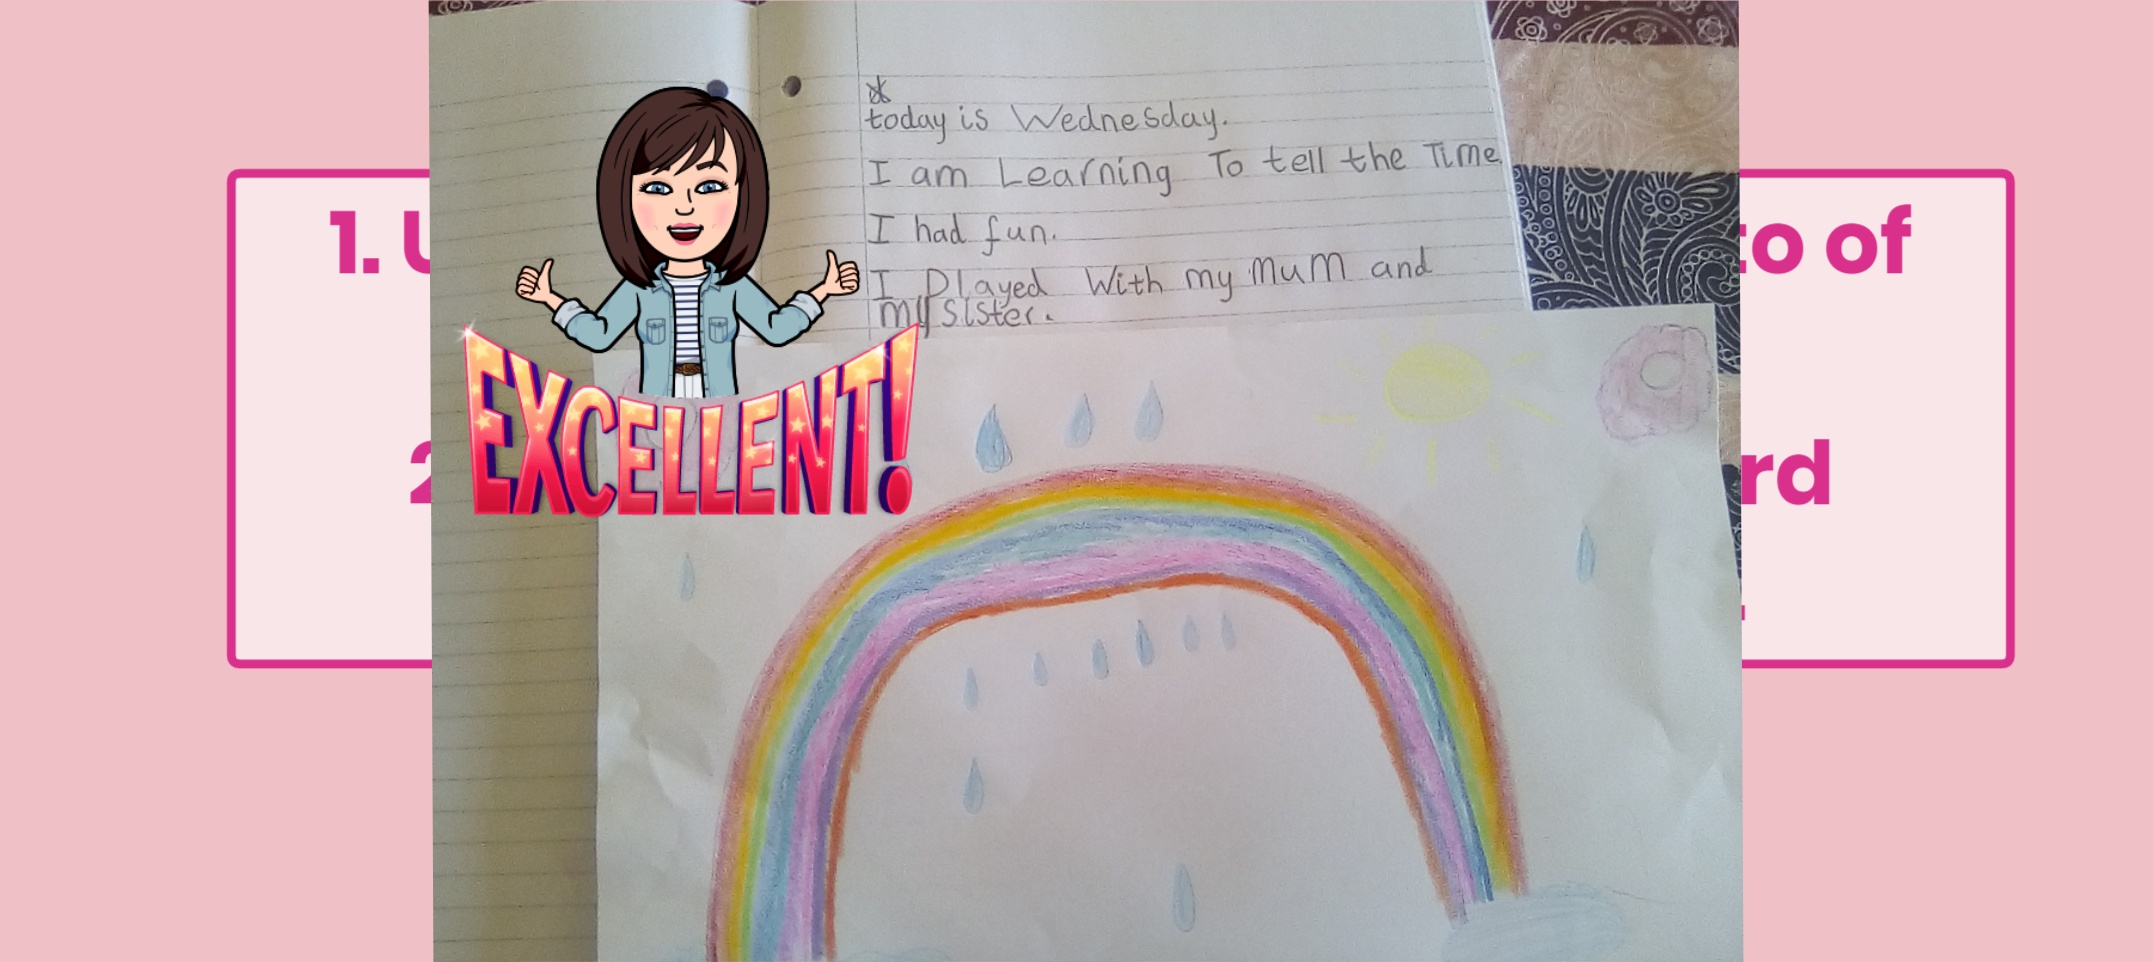 today is Wednesday.
I am Learning To tell the Time.
I had fun.
I Played With my MuM and
my sister.
EXCELLENT!
1. to of
2 rd